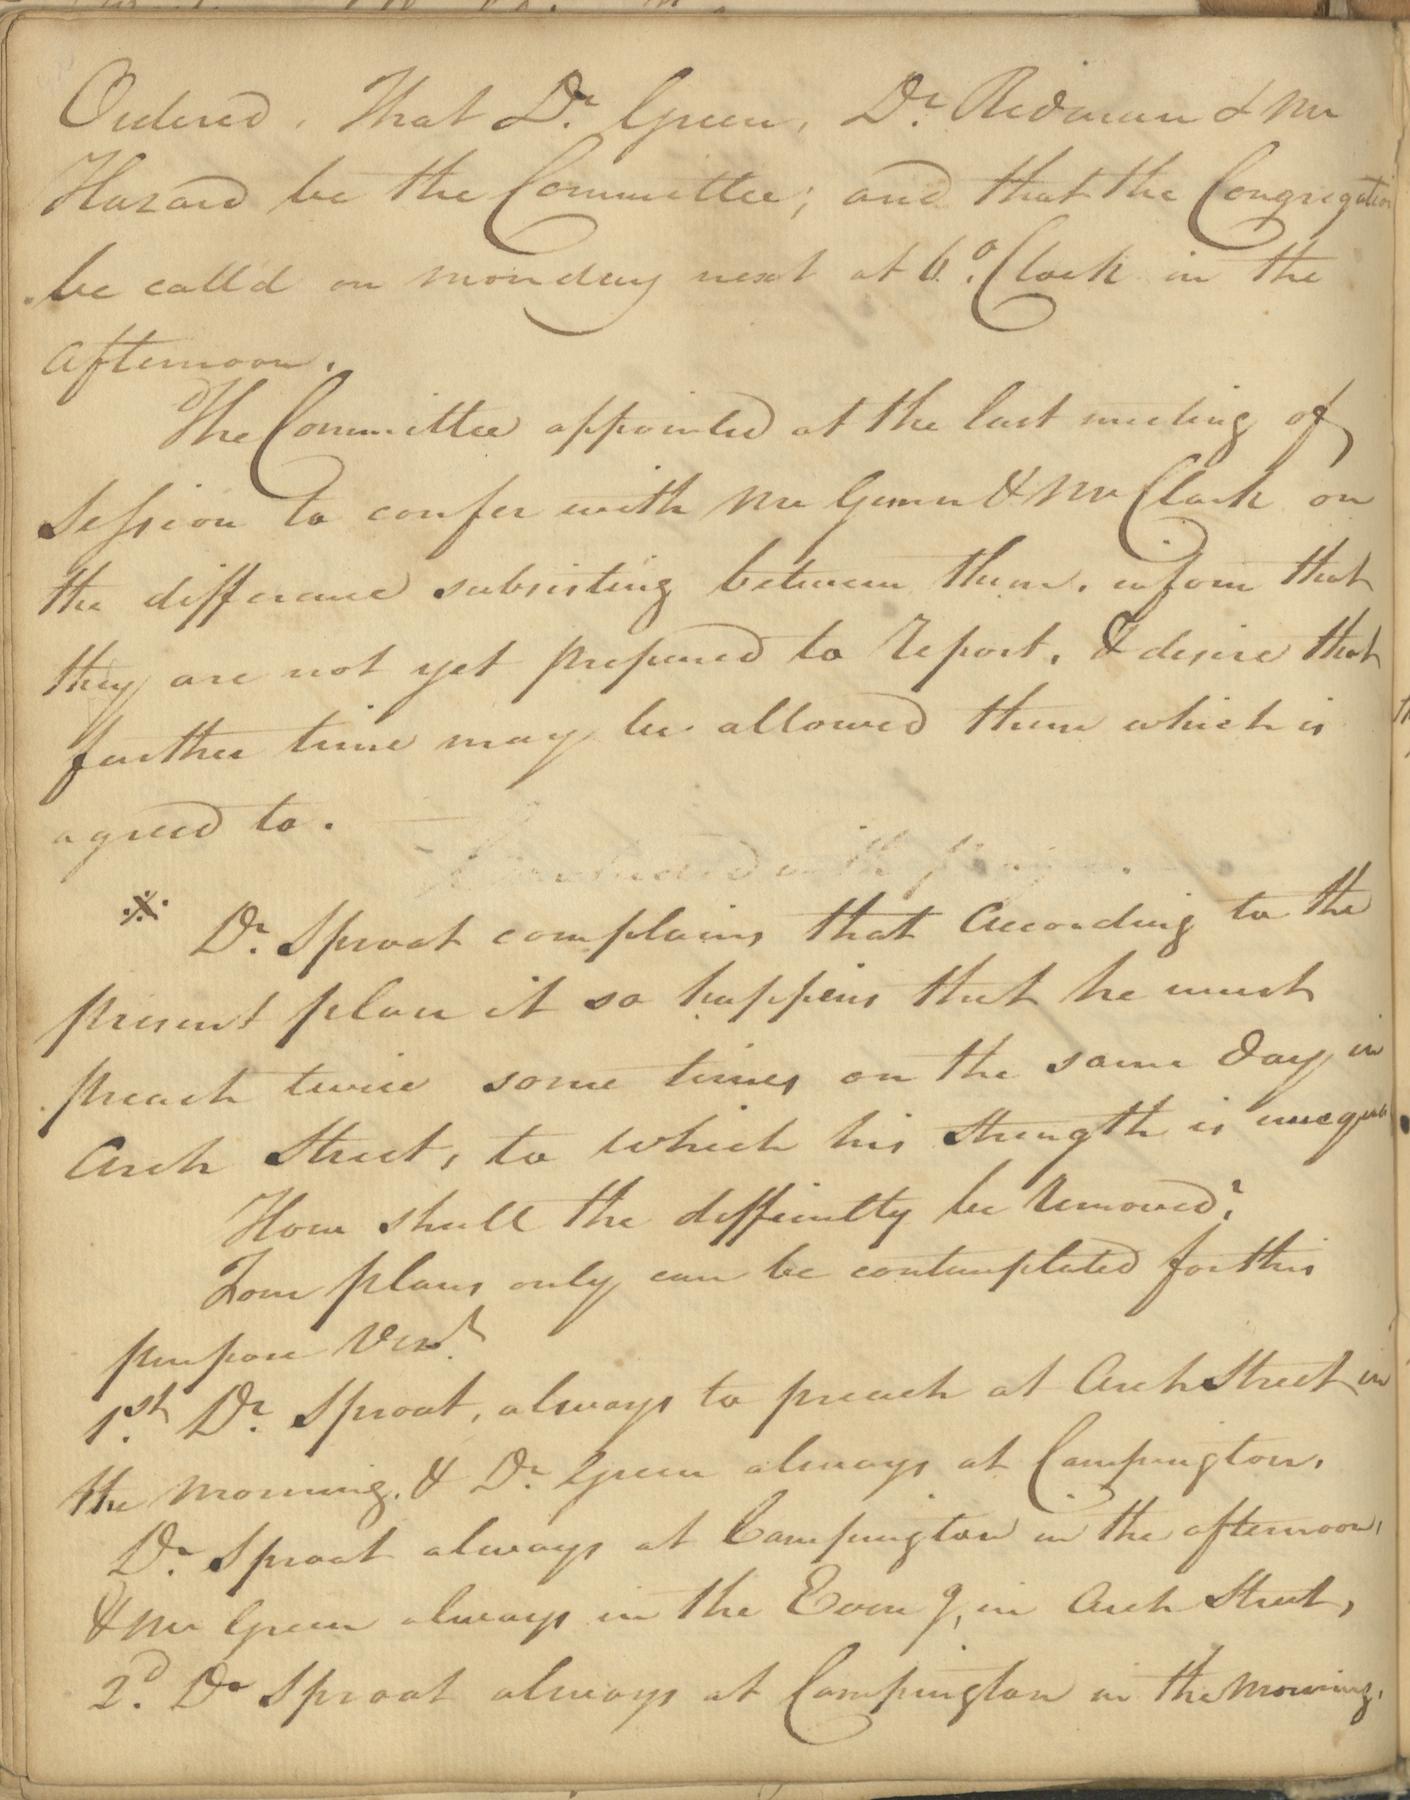 Ordered, That Dr. Green, Dr. Redman & Mr
Hazard be the Committee; and that the Congregation
be call'd on monday next at 6 o'Clock in the
afternoon.
The Committee appointed at the last meeting of
Session to confer with Mr & Mr Clark on
the difference subsisting between them, inform that
they are not yet prepared to report, & desire that
further time may be allowed them which is
agreed to.
Concluded with prayer.
※ Dr. Sproat complains that according to the
present plan it so happens that he must
preach twice some times on the same day in
Arch Street, to which his strength is unequal
How shall the difficulty be removed?
Four plans only can be contemplated for this
purpose Vizt.
1st. Dr. Sproat, always to preach at Arch Street in
the morning, & Dr. Green always at Campington.
Dr. Sproat always at Campington in the afternoon,
& Mr Green always in the Eveng, in Arch Street,
2d. Dr Sproat always at Campington in the morning,